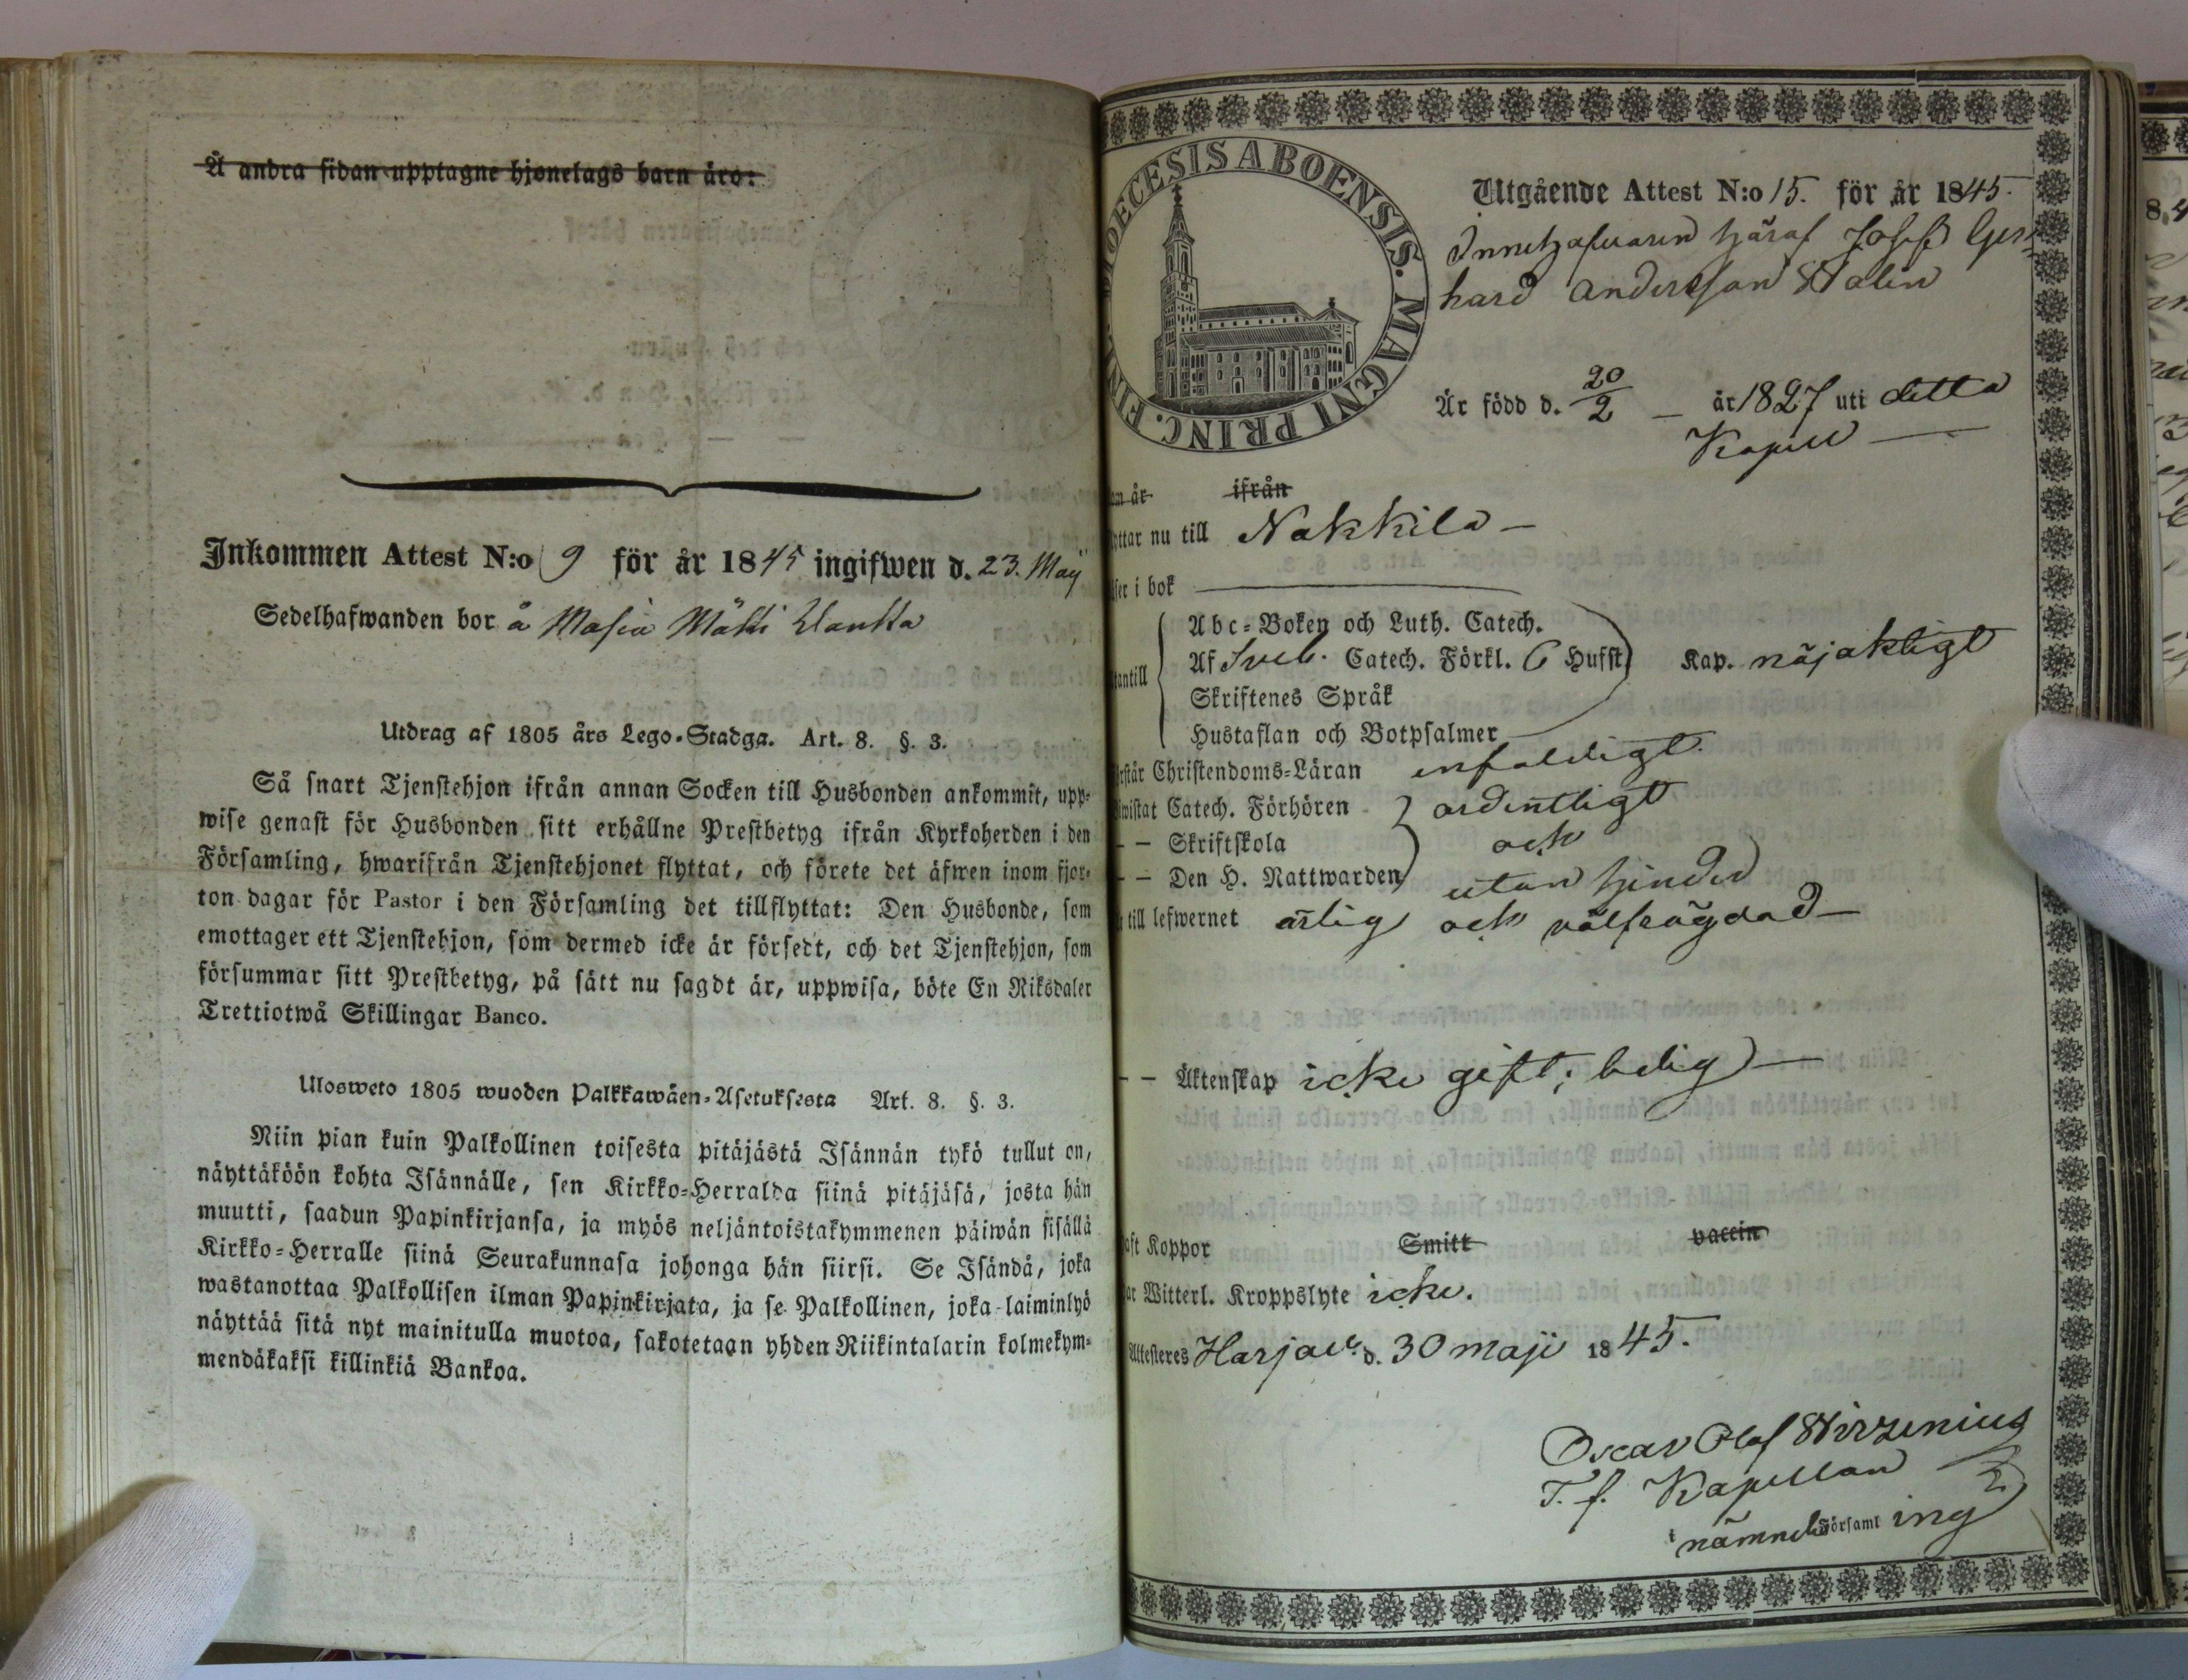 Å andra sidan upptagne hjonelags barn äro:
Inkommen Attest N:o 9 för år 1845 ingifwen d. 23. Maij
Sedelhafwanden bor å Masia Mätti
Utdrag af 1805 års Lego-Stadga. Art. 8. §. 3.
Så snart Tjenstehjon ifrån annan Socken till Husbonden ankommit, upp-
wise genast för Husbonden sitt erhållne Prestbetyg ifrån Kyrkoherden i den
Församling, hwarifrån Tjenstehjonet flyttat, och förete det äfwen inom fjor-
ton dagar för Pastor i den Församling det tillflyttat: Den Husbonde, som
emottager ett Tjenstehjon, som dermed icke är försedt, och det Tjenstehjon, som
försummar sitt Prestbetyg, på sätt nu sagdt är, uppwisa, böte En Riksdaler
Trettiotwå Skillingar Banco.
Ulosweto 1805 wuoden Palkkawäen-Asetuksesta Art. 8. §. 3.
Niin pian kuin Palkollinen toisesta pitäjästä Isännän tykö tullut on,
näyttäköön kohta Isännälle, sen Kirkko-Herralda siinä pitäjäsä, josta hän
muutti, saadun Papinkirjansa, ja myös neljäntoistakymmenen päiwän sisällä
Kirkko-Herralle siinä Seurakunnasa johonga hän siirsi. Se Isändä, joka
wastanottaa Palkollisen ilman Papinkirjata, ja se Palkollinen, joka laiminlyö
näyttää sitä nyt mainitulla muotoa, sakotetaan yhden Riikintalarin kolmekym-
mendäkaksi killinkiä Bankoa.
DIOECESIS ABOENSIS. MAGNI PRINC. FIN
Utgående Attest N:o 15. för år 1845.
Innehafvaren häraf Josef Ger-
hard Andersson Stalin
Är född d. 20/2 – år 1827 uti detta
Kapell
om år ifrån
yttar nu till Nakkila –
äser i bok
Abc-Boken och Luth. Catech.
Af Sveb. Catech. Förkl. 6 Hufst
Skriftenes Språk
Hustaflan och Botpsalmer
tantill Kap. nöjaktigt
rstår Christendoms-Läran enfaldigt.
iwistat Catech. Förhören ordentligt
– – Skriftskola och
– – Den H. Nattwarden utan hinder
till lefwernet ärlig och välfrägdad –
– – Äktenskap icke gift; ledig –
aft Koppor Smitt vaccin
ar Witterl. Kroppslyte icke.
Attesteres Harjav. d. 30 maji 1845.
Oscar Olof Wirzenius
T. f. Kapellan
i nämnde Församling